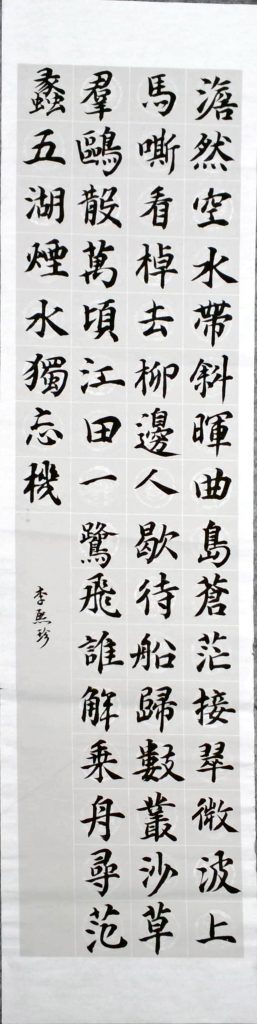 澹然空水帶斜暉曲島蒼茫接翠微波上
馬嘶看棹去柳邊人歇待船歸數叢沙草
羣鷗散萬頃江田一鷺飛誰解乘舟尋范
蠡五湖煙水獨忘機
李熙珍